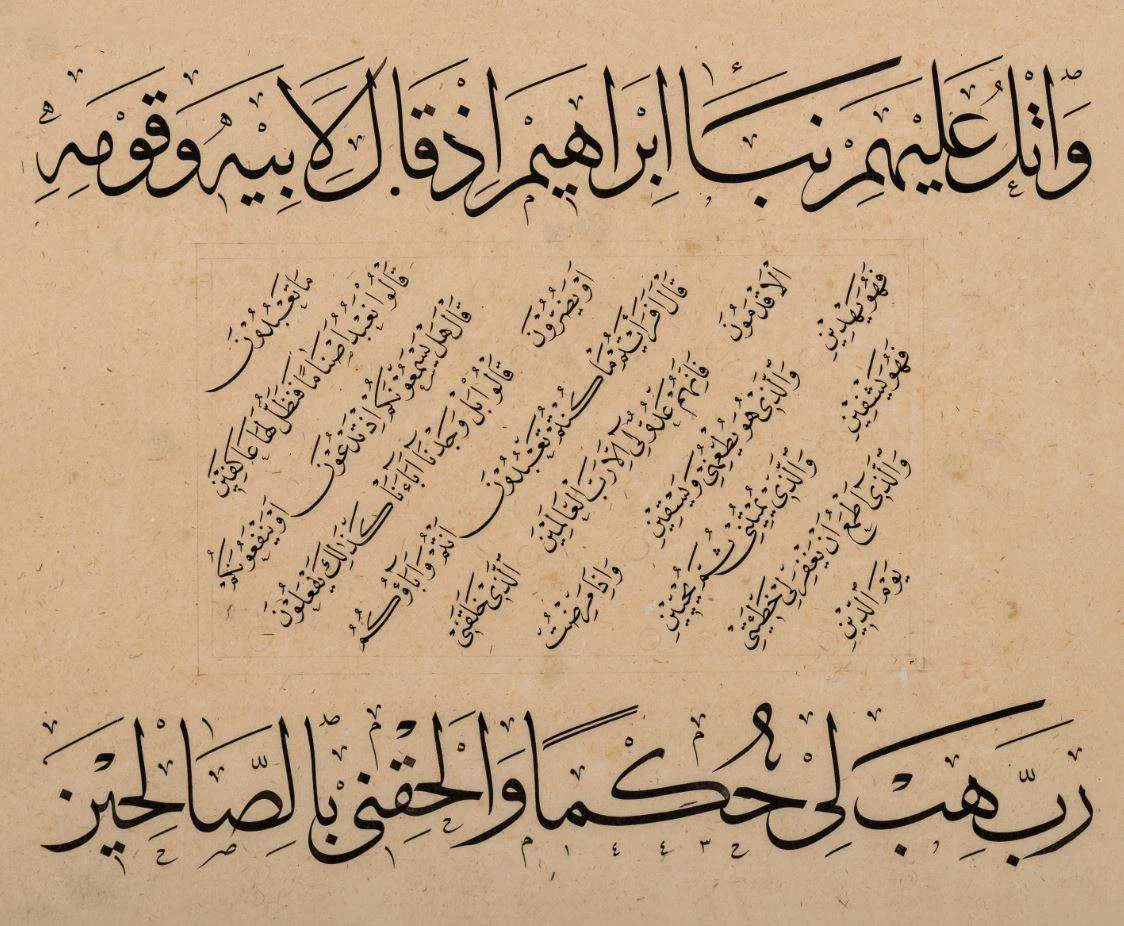 وَاتْلُ عَلَيْهِمْ نَبَاَ اِبْرَاهِيمَ اِذْ قَالَ لِاَبِيْهِ وَقَوْمِهِ
مَا تَعْبُدُوْنَ
قَالُوْا نَعْبُدُ اَصْنَامًا فَنَظَلُّ لَهَا عَاكِفِيْنَ
قَالَ هَلْ يَسْمَعُوْنَكُمْ اِذْ تَدْعُوْنَ
اَوْ يَنْفَعُوْنَكُمْ
اَوْ يَضُرُّوْنَ
قَالُوْا بَلْ وَجَدْنَا اٰبَاءَنَا كَذٰلِكَ يَفْعَلُوْنَ
قَالَ اَفَرَاَيْتُمْ مَا كُنْتُمْ تَعْبُدُوْنَ
اَنْتُمْ وَاٰبَاؤُكُمُ
الْاَقْدَمُوْنَ
فَاِنَّهُمْ عَدُوٌّ لِيْ اِلَّا رَبَّ الْعَالَمِيْنَ
اَلَّذِيْ خَلَقَنِيْ
فَهُوَ يَهْدِيْنِ
وَالَّذِيْ هُوَ يُطْعِمُنِيْ وَيَسْقِيْنِ
وَاِذَا مَرِضْتُ
فَهُوَ يَشْفِيْنِ
وَالَّذِيْ يُمِيْتُنِيْ ثُمَّ يُحْيِيْنِ
وَالَّذِيْ اَطْمَعُ
اَنْ يَغْفِرَ لِيْ خَطِيْئَتِيْ
يَوْمَ الدِّيْنِ
رَبِّ هَبْ لِيْ حُكْمًا وَاَلْحِقْنِيْ بِالصَّالِحِيْنَ
١٤٤٣